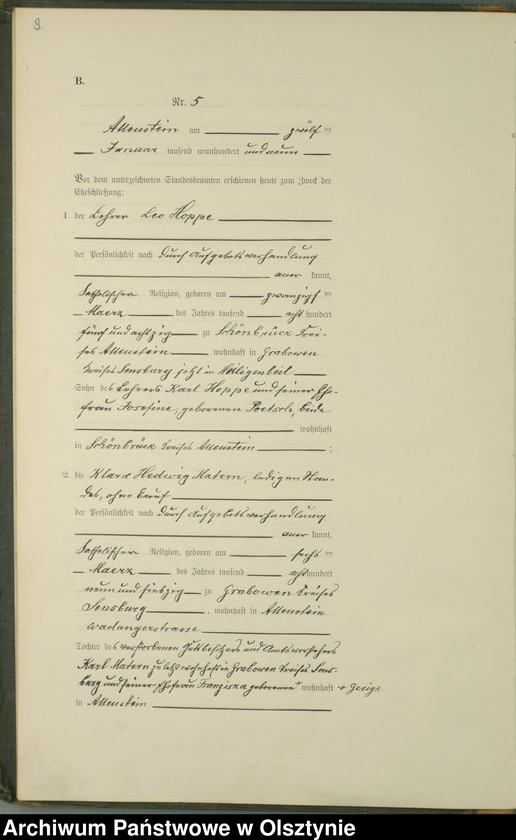 9
B.
Nr. 5
Allenstein am zwölf ten
Januar tausend neunhundert und neun
Vor dem unterzeichneten Standesbeamten erschienen heute zum Zweck der
Eheschließung:
1. der Lehrer Leo Hoppe
der Persönlichkeit nach durch Aufgebotsverhandlung
aner kannt,
katholischer Religion, geboren am zwanzigs ten
Maerz des Jahres tausend acht hundert
fünf und achtzig zu Schönbrück Krei-
ses Allenstein wohnhaft in Grabowen
Kreises Sensburg jetzt in Heiligenbeil
Sohn des Lehrers Karl Hoppe und seiner Ehe-
frau Josefine, geborenen Poetsch, beide
wohnhaft
in Schönbrück Kreises Allenstein ;
2. die Klara Hedwig Matern, ledigen Stan-
des, ohne Beruf
der Persönlichkeit nach durch Aufgebotsverhandlung
aner kannt,
katholischer Religion, geboren am sechs ten
Maerz des Jahres tausend acht hundert
neun und siebzig zu Grabowen Kreises
Sensburg , wohnhaft in Allenstein
Wadangerstrasse
Tochter des verstorbenen Gutsbesitzers und Amtsvorstehers
Karl Matern zuletzt wohnhaft in Grabowen Kreises Sens-
burg und seiner Ehefrau Franziska geborenen wohnhaft + Gerigk
in Allenstein
Archiwum Państwowe w Olsztynie